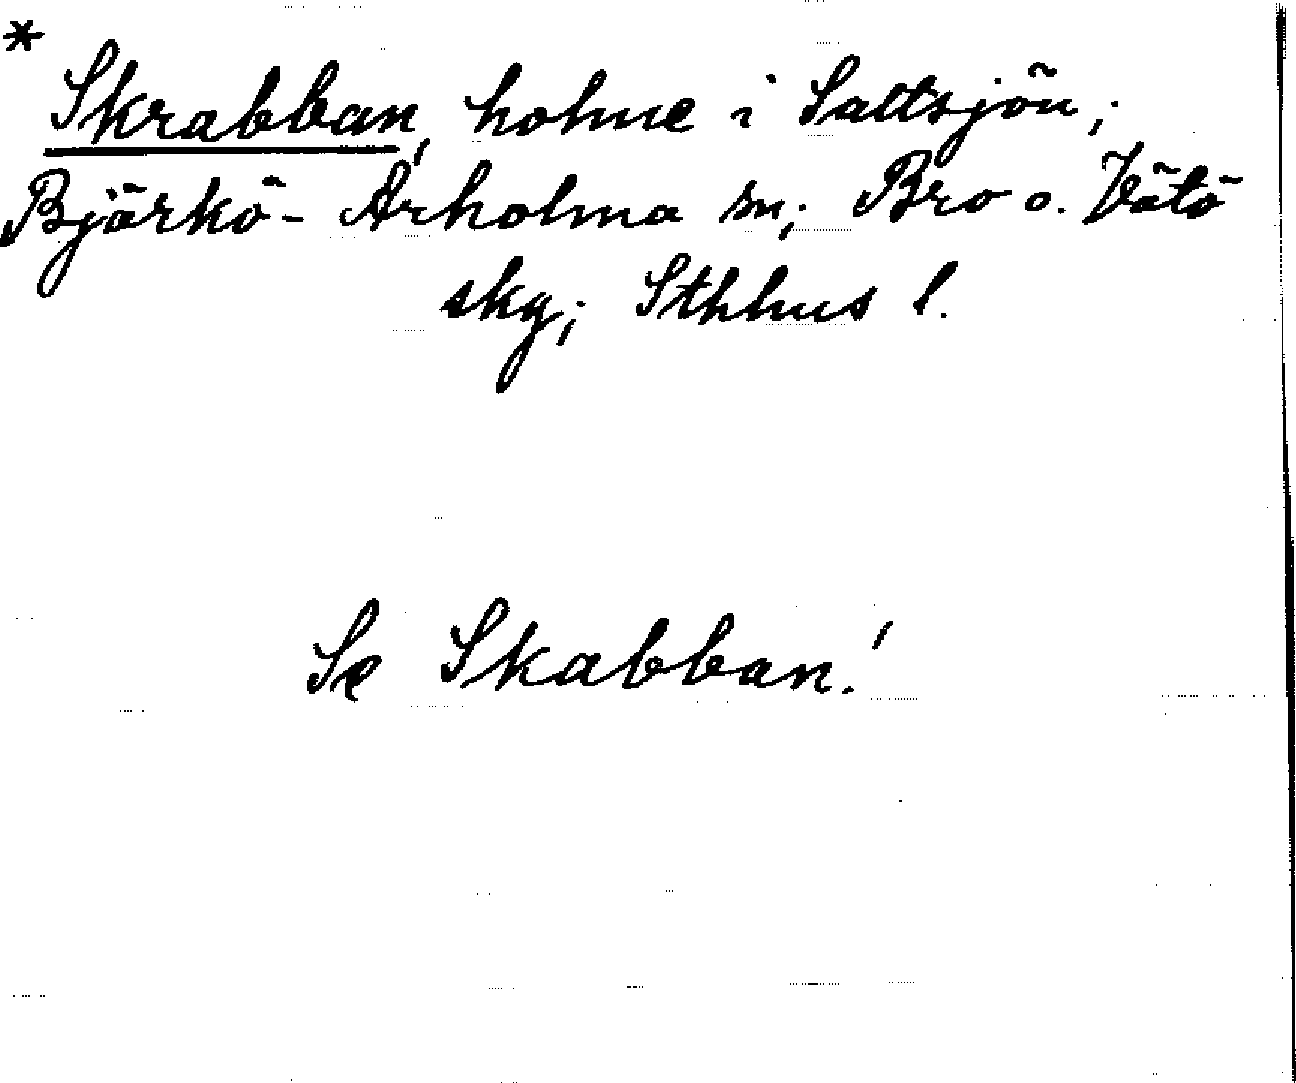 *
Skrabban, holme i Saltsjön;
Björkö-Arholma sn; Bro o. Vätö
skg; Sthlms l.
Se Skabban!